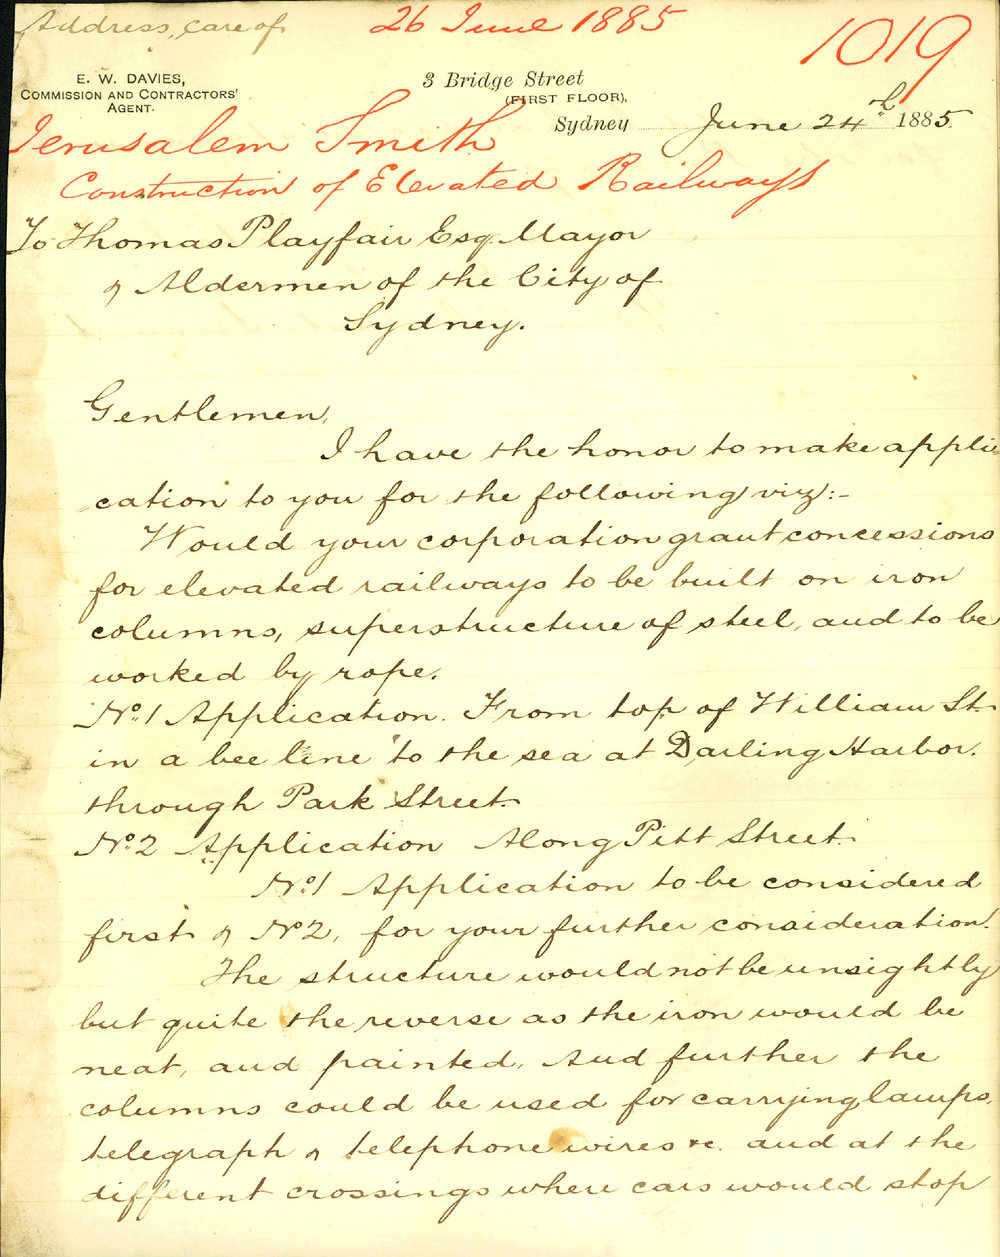 Address, care of
26 June 1885
1019
E. W. DAVIES,
COMMISSION AND CONTRACTORS'
AGENT.
3 Bridge Street
(FIRST FLOOR),
Sydney June 24th 1885
Jerusalem Smith
Construction of Elevated Railways
To Thomas Playfair Esq. Mayor
& Aldermen of the City of
Sydney.
Gentlemen,
I have the honor to make appli-
cation to you for the following viz:-
Would your corporation grant concessions
for elevated railways to be built on iron
columns, superstructure of steel, and to be
worked by rope.
No. 1 Application. From top of William St.
in a bee line to the sea at Darling Harbor.
through Park Street.
No. 2 Application Along Pitt Street.
No. 1 Application to be considered
first & No 2, for your further consideration.
The structure would not be unsightly
but quite the reverse as the iron would be
neat, and painted. And further the
columns could be used for carrying lamps,
telegraph & telephone wires &c. and at the
different crossings where cars would stop